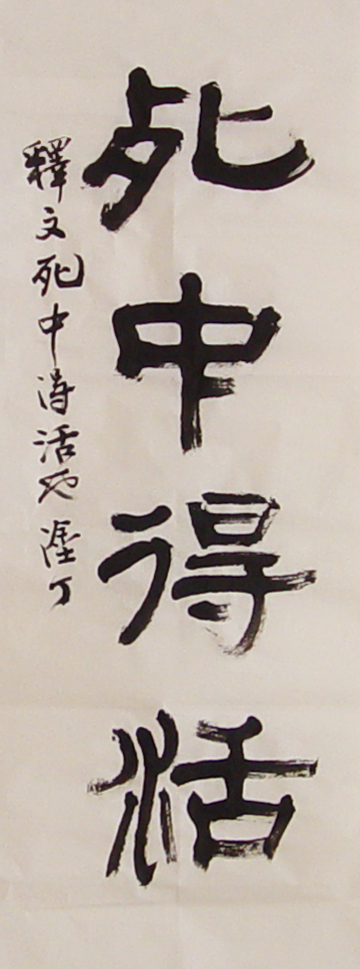 死中得活
釋文死中得活也